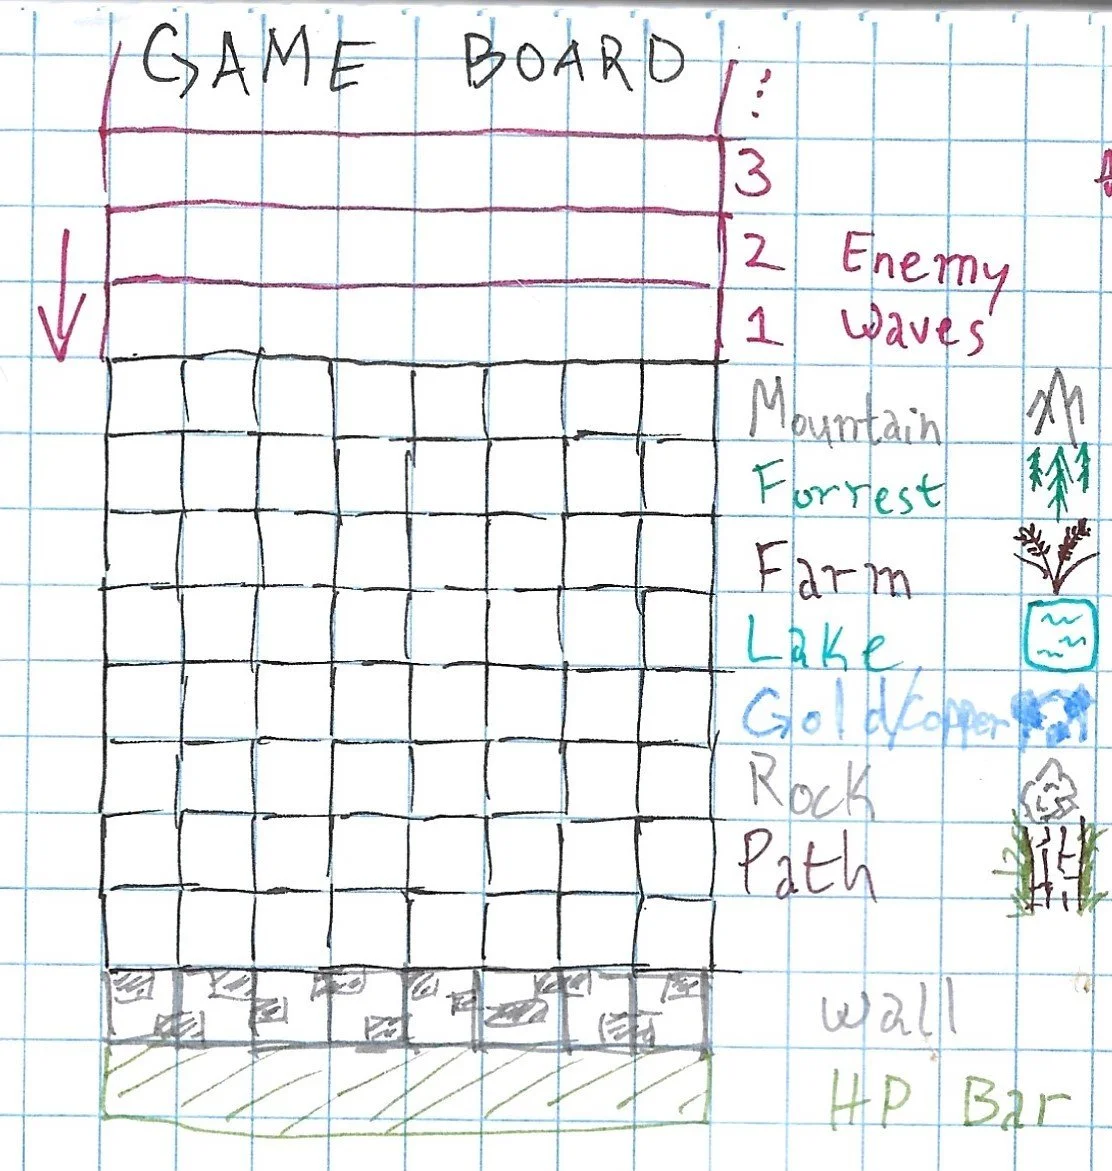 GAME BOARD
⋮
3
2 Enemy
1 Waves
Mountain
Forrest
Farm
Lake
Gold/Copper
Rock
Path
Wall
HP Bar